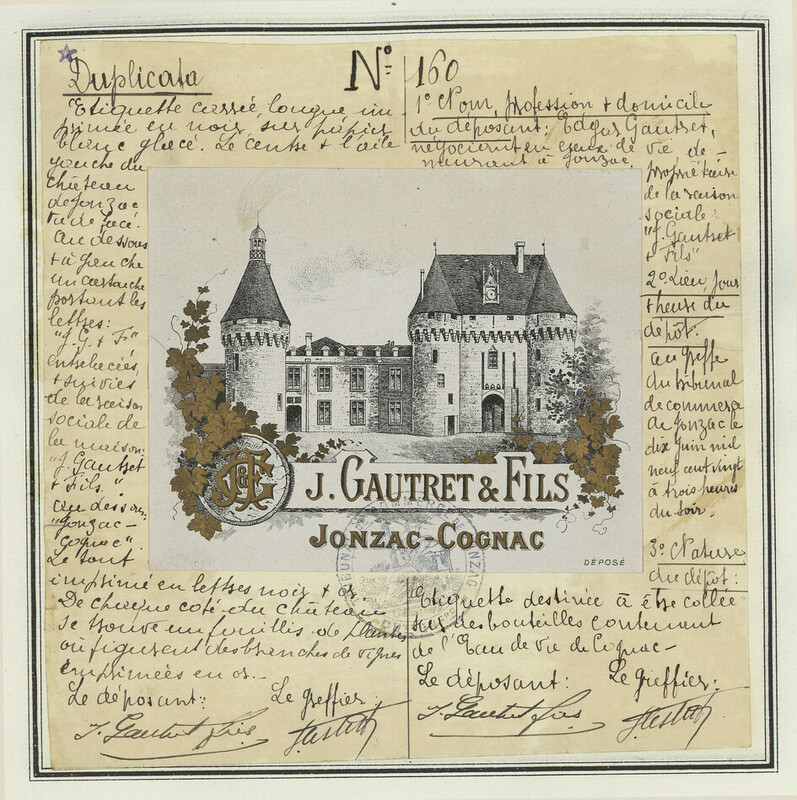 Duplicata
Etiquette carrée, longue im
primée en noir, sur papier
blanc glacé. Le centre & l'aile
gauche du
château
de Jonzac
vu de face.
Au dessous
& à gauche
un cartouche
portant les
lettres:
"J. G. & Fs"
entrelacées,
& suivies
de la raison
sociale de
la maison:
"J. Gautret
& Fils."
au dessous:
"Jonzac-
Cognac".
Le tout
imprimé en lettres noir & or.
De chaque coté du château
se trouve un fouillis de plantes
où figurent des branches de vignes
imprimées en or.
Le déposant: Le greffier:
J. Gautret fils
No 160
1o Nom, profession & domicile
du déposant: Edgar Gautret,
négociant en eaux de vie, de-
meurant à Jonzac,
propriétaire
de la raison
sociale:
"J. Gautret
& Fils"
2o Lieu, jour
& heure du
dépôt:
au greffe
du tribunal
de commerce
de Jonzac le
dix juin mil
neuf cent vingt
à trois heures
du soir.
3o Nature
du dépôt:
Etiquette destinée à être collée
sur des bouteilles contenant
de l'Eau de vie de Cognac-
Le déposant: Le Greffier:
J. Gautret fils
J. GAUTRET & FILS
JONZAC-COGNAC
DÉPOSÉ